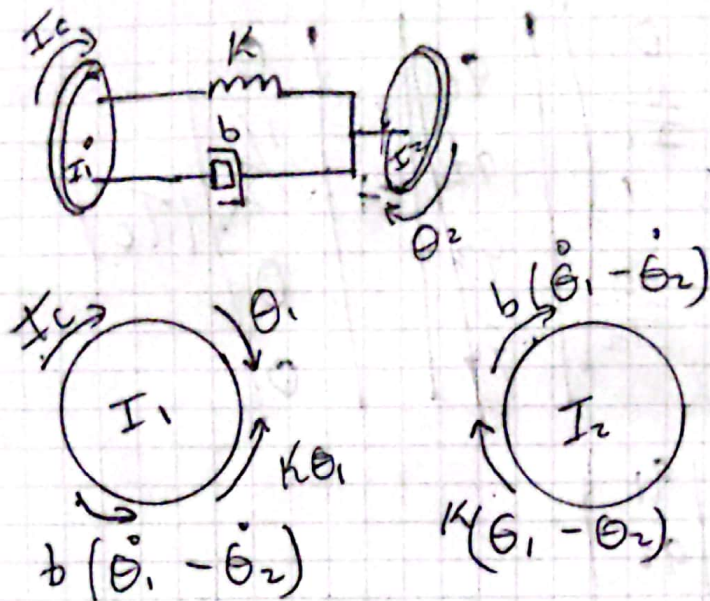 Ic
K
b
I1
I2
θ2
Ic
θ1
I1
Kθ1
b(θ̇1 - θ̇2)
b(θ̇1 - θ̇2)
I2
K(θ1 - θ2)